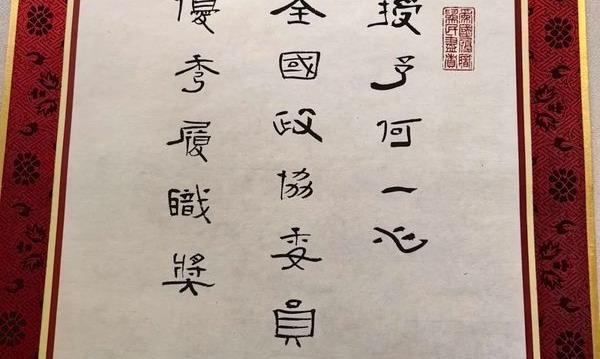 授予何一心
全國政協委員
優秀履職獎